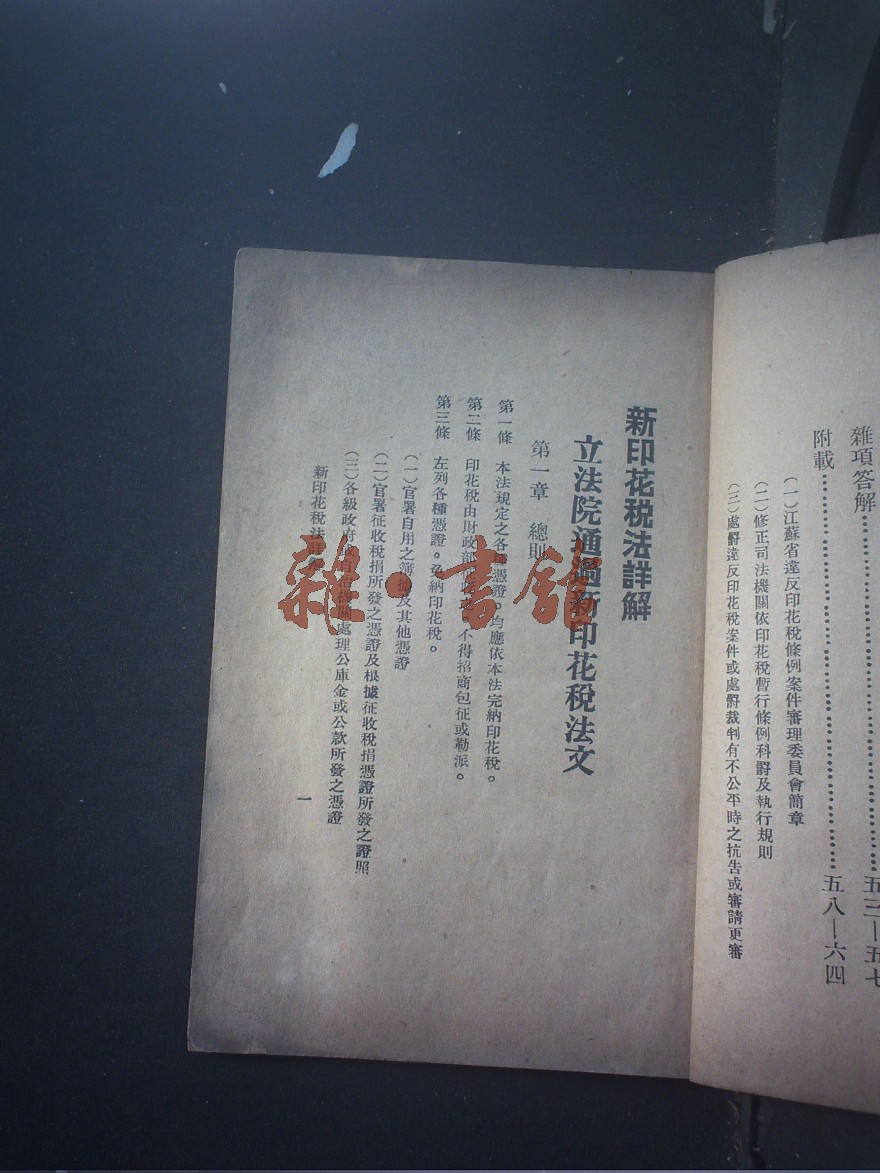 雜項答解……五三—五七
附載……五八—六四
（一）江蘇省違反印花稅條例案件審理委員會簡章
（二）修正司法機關依印花稅暫行條例科罸及執行規則
（三）處罸違反印花稅案件或處罸裁判有不公平時之抗告或審請更審
新印花稅法詳解
立法院通過新印花稅法文
第一章 總則
第一條 本法規定之各種憑證。均應依本法完納印花稅。
第二條 印花稅由財政部征收之。不得招商包征或勒派。
第三條 左列各種憑證。免納印花稅。
（一）官署自用之簿據及其他憑證
（二）官署征收稅捐所發之憑證及根據征收稅捐憑證所發之證照
（三）各級政府或自治機關處理公庫金或公款所發之憑證
新印花稅法詳解
一
雜·書館